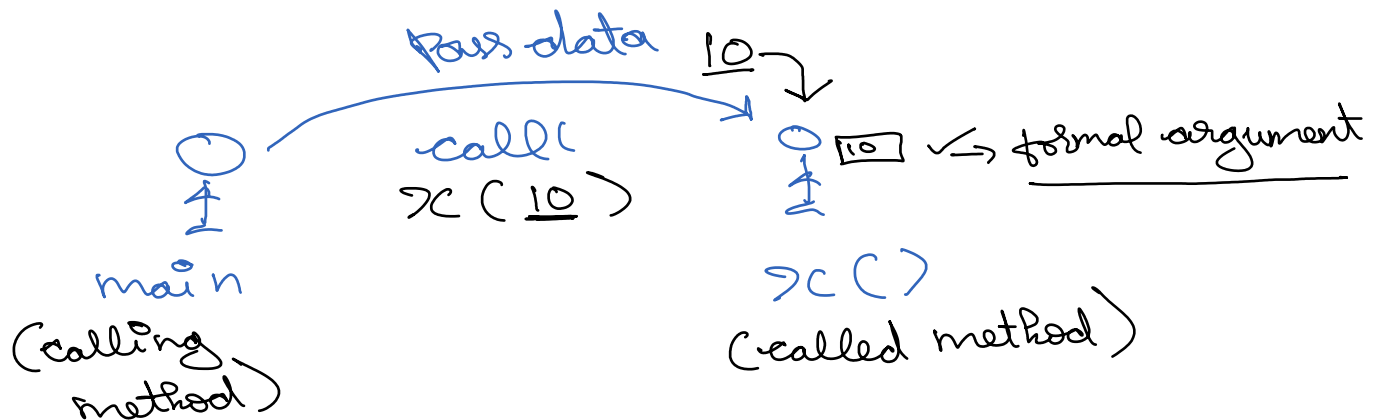 Pass data
10
call(
x(10)
10
formal argument
main
(calling
method)
x()
(called method)